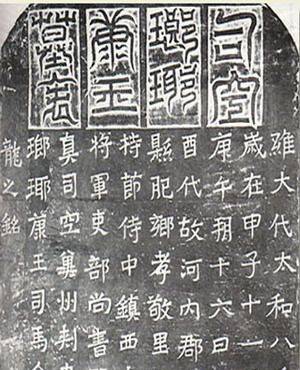 司空
瑯琊
康王
墓表
維大代大和八
歲在甲子十一
庚午朔十六日
酉代故河內郡
縣肥鄉孝敬里
持節侍中鎮西
將軍吏部尚書
真司空冀州刺
瑯琊康王司馬金
龍之銘